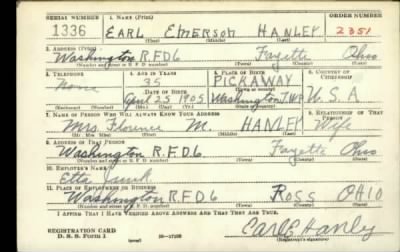 SERIAL NUMBER 1. NAME (Print) ORDER NUMBER
1336 EARL EMERSON HANLEY 2351
(First) (Middle) (Last)
2. ADDRESS (Print)
Washington R.F.D 6 Fayette Ohio
(Number and street or R. F. D. number) (Town) (County) (State)
3. TELEPHONE 4. AGE IN YEARS 5. PLACE OF BIRTH 6. COUNTRY OF CITIZENSHIP
None 35 PICKAWAY
DATE OF BIRTH (Town or county)
April 25 1905 Washington TWP U.S.A
(Exchange) (Number) (Mo.) (Day) (Yr.) (State or country)
7. NAME OF PERSON WHO WILL ALWAYS KNOW YOUR ADDRESS 8. RELATIONSHIP OF THAT PERSON
Mrs. Florence M. HANLEY Wife
(Mr. Mrs. Miss) (First) (Middle) (Last)
9. ADDRESS OF THAT PERSON
Washington R.F.D.6 Fayette Ohio
(Number and street or R. F. D. number) (Town) (County) (State)
10. EMPLOYER'S NAME
Etta
11. PLACE OF EMPLOYMENT OR BUSINESS
Washington R.F.D.6 ROSS OHIO
(Number and street or R. F. D. number) (Town) (County) (State)
I AFFIRM THAT I HAVE VERIFIED ABOVE ANSWERS AND THAT THEY ARE TRUE.
REGISTRATION CARD
D. S. S. Form 1
Earl E Hanly
(Registrant's signature)